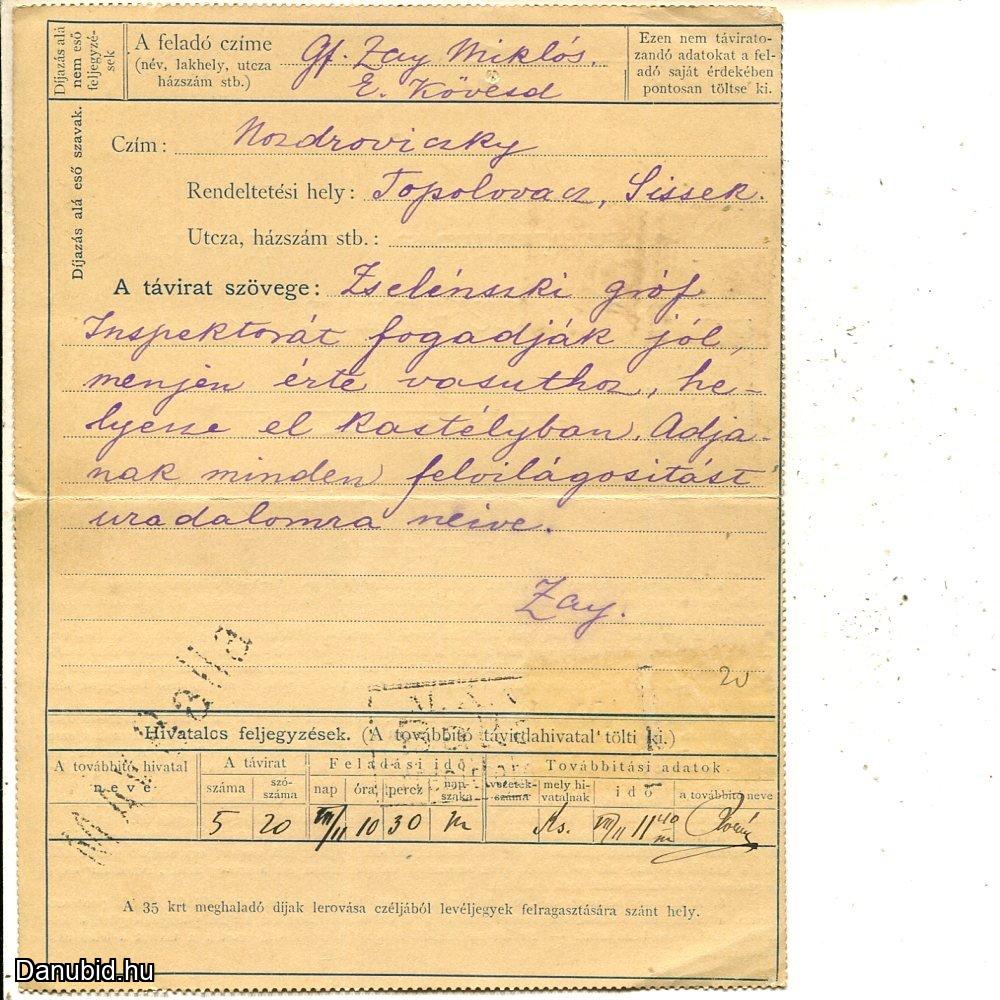 Díjazás alá nem eső feljegyzések
A feladó czíme
(név, lakhely, utcza házszám stb.)
Gf. Zay Miklós.
E. Kövesd
Ezen nem táviratozandó adatokat a feladó saját érdekében pontosan töltse ki.
Díjazás alá eső szavak.
Czím: Nozdroviczky
Rendeltetési hely: Topolovacz, Sissek.
Utcza, házszám stb.:
A távirat szövege: Zselénszki gróf
Inspektorát fogadják jól,
menjen érte vasuthoz, he-
lyezze el kastélyban. Adja-
nak minden felvilágositást
uradalomra neive.
Zay.
20
Hivatalos feljegyzések. (A továbbító távirdahivatal tölti ki.)
A továbbító hivatal neve
A távirat
száma
szószáma
Feladási idő
nap
óra
perez
napszaka
Továbbítási adatok.
vezetékszáma
mely hivatalnak
idő
a továbbító neve
5 20 VII/11 10 30 m Ks. VII/11 11 40 m
A 35 krt meghaladó díjak lerovása czéljából levéljegyek felragasztására szánt hely.
Danubid.hu